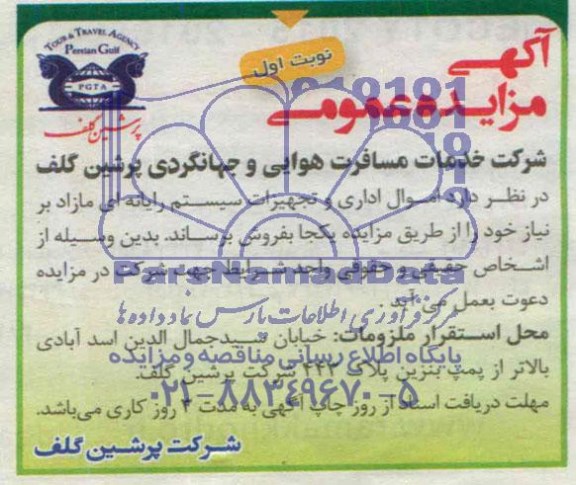 TOUR & TRAVEL AGENCY
Persian Gulf
PGTA
پرشین گلف
نوبت اول
آگهی
مزایده عمومی
شرکت خدمات مسافرت هوایی و جهانگردی پرشین گلف
در نظر دارد اموال اداری و تجهیزات سیستم رایانه ای مازاد بر
نیاز خود را از طریق مزایده یکجا بفروش برساند. بدین وسیله از
اشخاص حقیقی و حقوقی واجد شرایط جهت شرکت در مزایده
دعوت بعمل می آید.
محل استقرار ملزومات: خیابان سیدجمال الدین اسد آبادی
بالاتر از پمپ بنزین پلاک ۴۴۳ شرکت پرشین گلف.
مهلت دریافت اسناد از روز چاپ آگهی به مدت ۴ روز کاری می‌باشد.
شرکت پرشین گلف
ParsNamadData
مرکز فرآوری اطلاعات پارس نماد داده ها
پایگاه اطلاع رسانی مناقصه و مزایده
۰۲۱-۸۸۳۴۹۶۷۰-۵